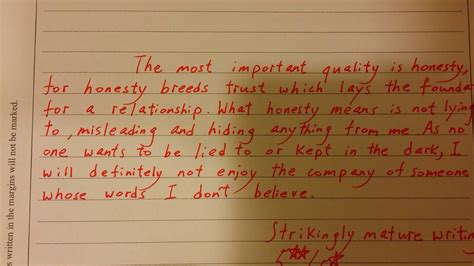 The most important quality is honesty,
for honesty breeds trust which lays the founda
for a relationship. What honesty means is not lying
to, misleading and hiding anything from me. As no
one wants to be lied to or kept in the dark, I
will definitely not enjoy the company of someone
whose words I don't believe.
Strikingly mature writin
s written in the margins will not be marked.